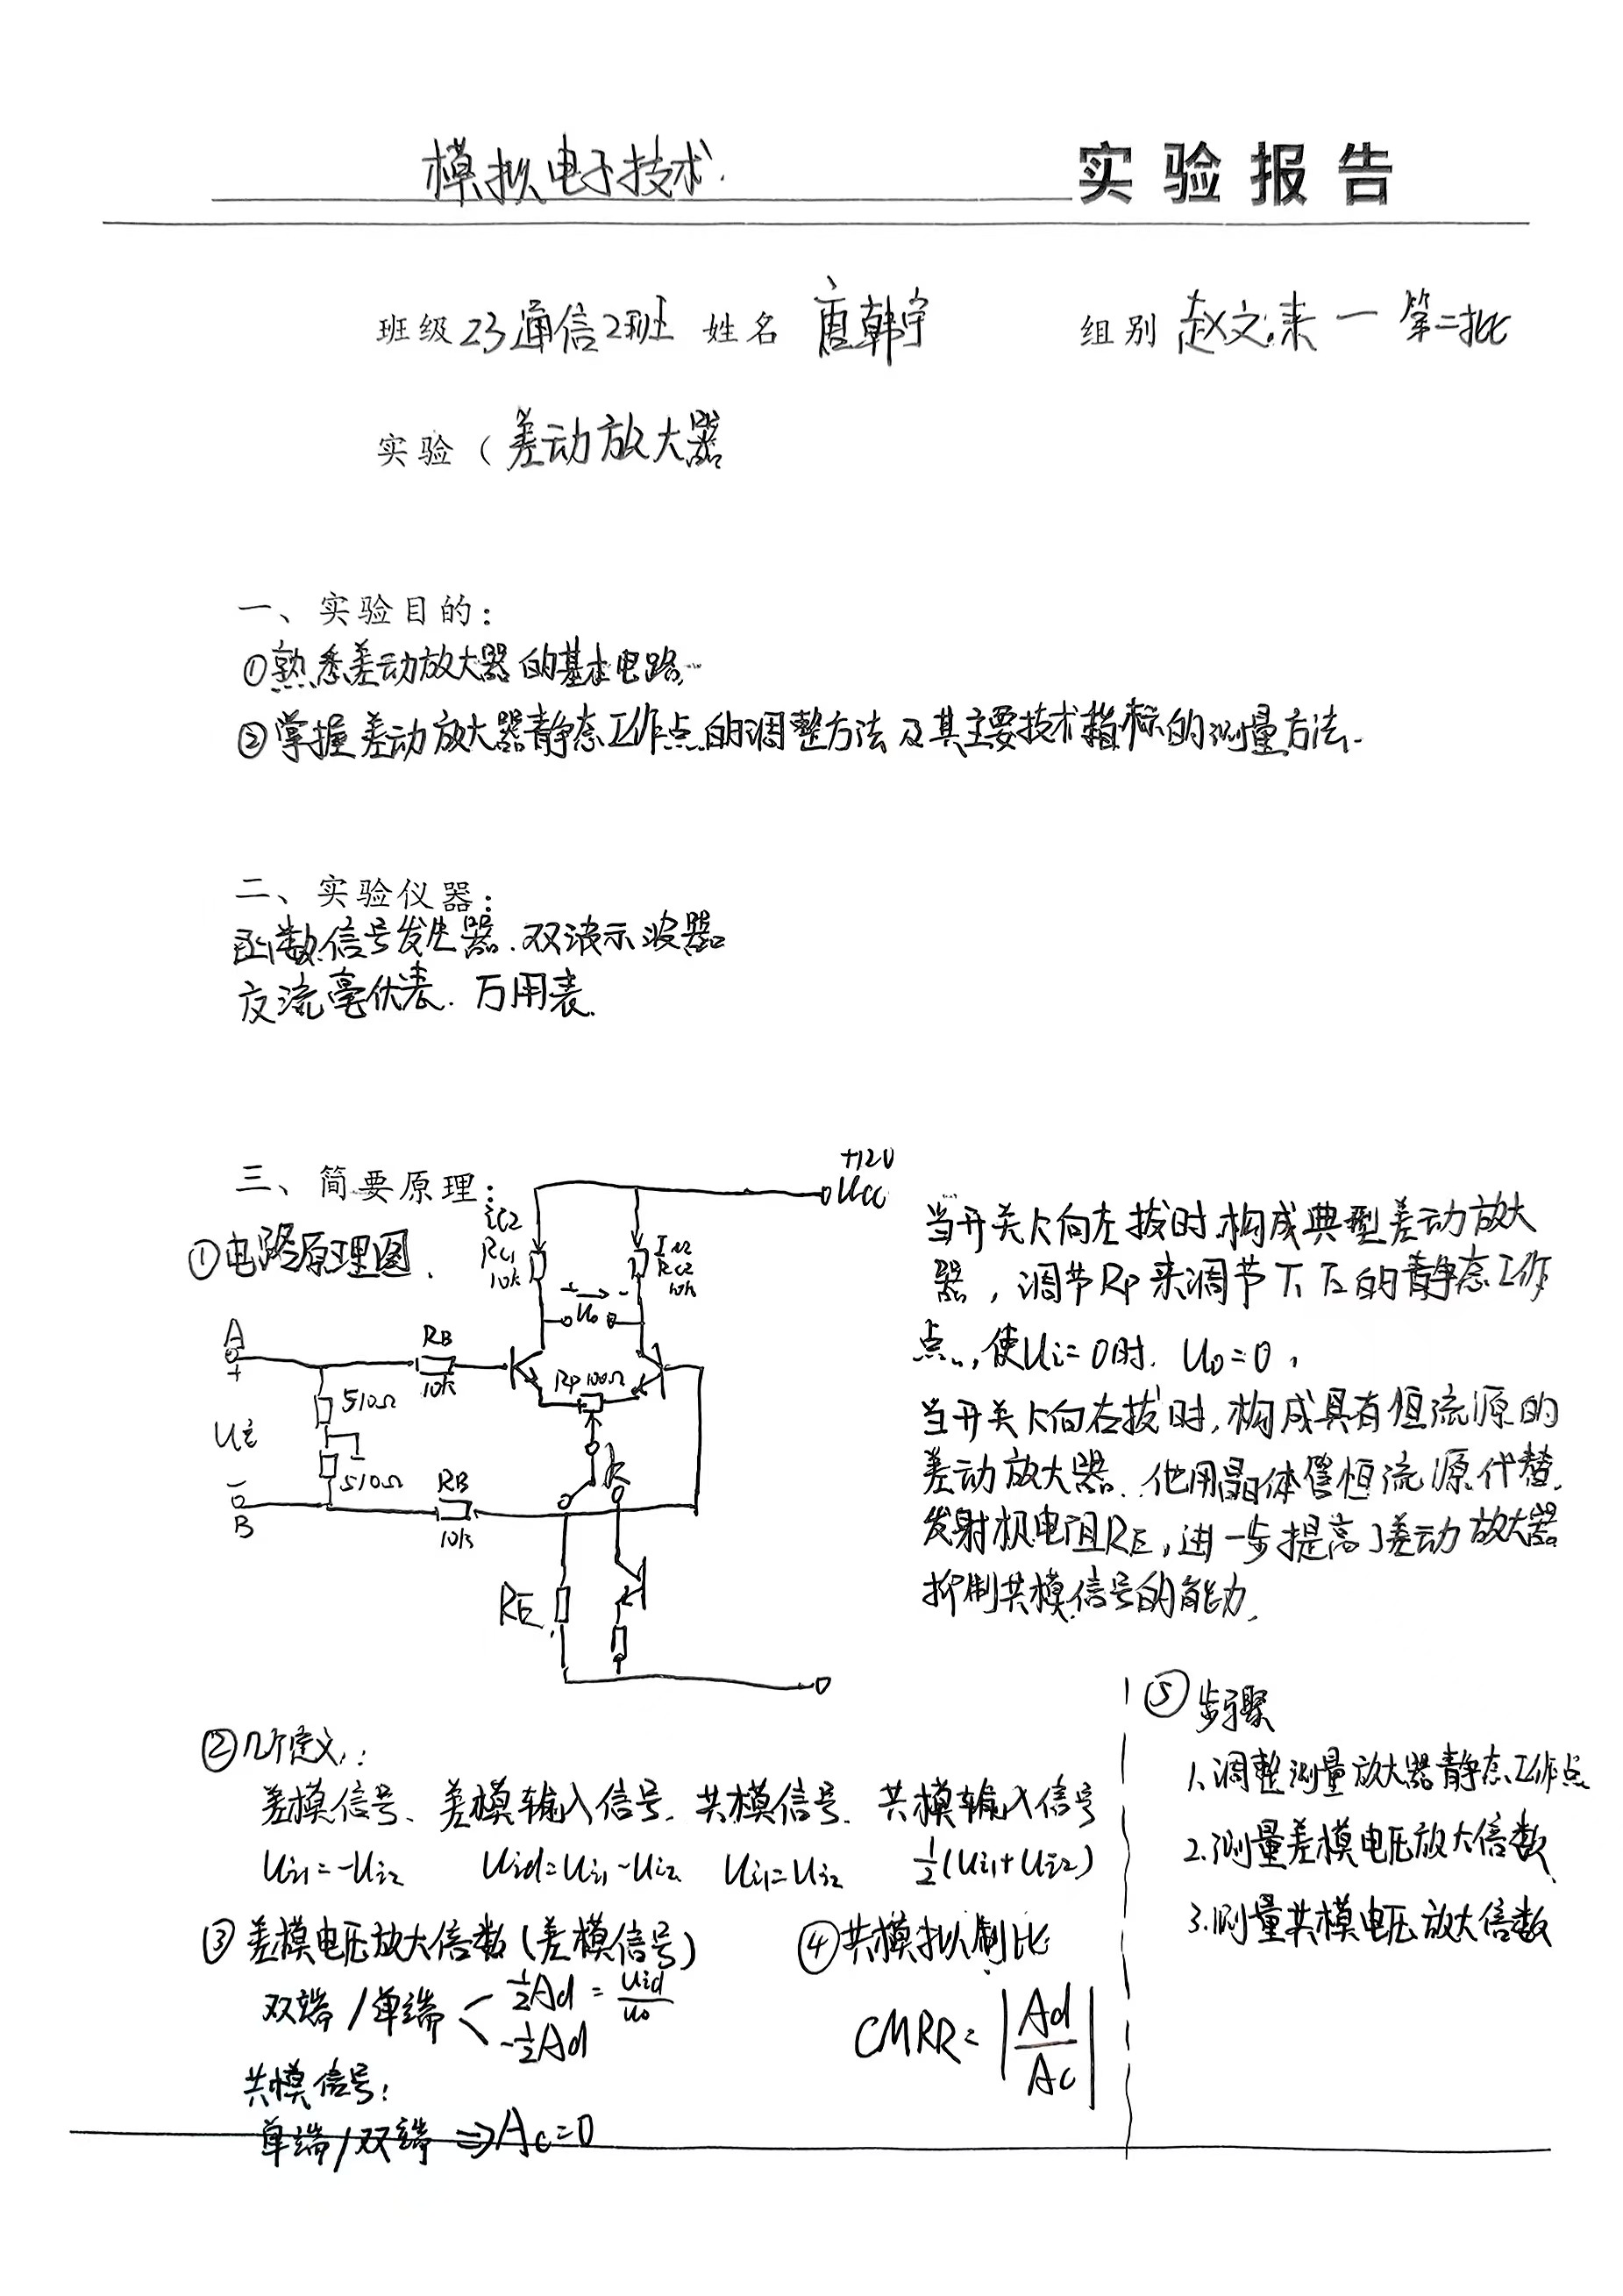 模拟电子技术. 实验报告
班级 23通信2班 姓名 唐韩宇 组别 赵文涞 一 第二批
实验（差动放大器
一、实验目的：
①熟悉差动放大器的基本电路.
②掌握差动放大器静态工作点的调整方法及其主要技术指标的测量方法.
二、实验仪器：
函数信号发生器.双波示波器
交流毫伏表. 万用表.
三、简要原理：
①电路原理图.
+12V
Ucc
ic2
Rc1
10k
Rc2
10k
+ -
Uo
A
+
RB
10k
Rp100Ω
510Ω
Ui
k
510Ω
-
B
RB
10k
RE
当开关K向左拔时.构成典型差动放大
器，调节Rp来调节T1 T2的静态工作
点，使Ui=0时. Uo=0，
当开关K向右拔时,构成具有恒流源的
差动放大器.他用晶体管恒流源代替.
发射极电阻RE,进一步提高了差动放大器
抑制共模信号的能力.
②几个定义：
差模信号、差模输入信号.共模信号. 共模输入信号
Ui1=-Ui2 Uid=Ui1-Ui2 Ui1=Ui2 1/2(Ui1+Ui2)
③差模电压放大倍数(差模信号)
双端/单端< 1/2Ad=Uid/Uo
-1/2Ad
共模信号:
单端/双端 ⇒Ac=0
④共模拟制比
CMRR=|Ad/Ac|
⑤步骤
1.调整测量放大器静态工作点
2.测量差模电压放大倍数
3.测量共模电压放大倍数